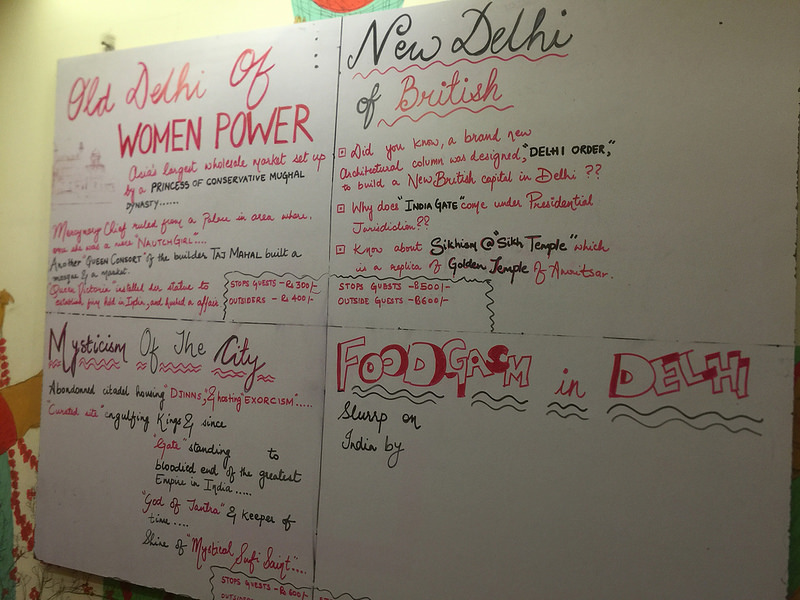 Old Delhi Of
WOMEN POWER
Asia's largest wholesale market set up
by a PRINCESS OF CONSERVATIVE MUGHAL
DYNASTY......
Mercynary Chief ruled from a Palace in area where,
once she was a mere "NAUTCH GIRL"....
Another "QUEEN CONSORT" of the builder TAJ MAHAL built a
mosque & a market.
"Queen Victoria" installed her statue to
jury held in India, and hushed a affair
STOPS GUESTS - Rs 300/-
OUTSIDERS - Rs 400/-
New Delhi
of British
Did you know, a brand new
Architectural column was designed, "DELHI ORDER,"
to build a New British capital in Delhi ??
Why does "INDIA GATE" come under Presidential
Jurisdiction??
Know about Sikhism @ "Sikh Temple" which
is a replica of Golden Temple Of Amritsar.
STOPS GUESTS - 500/-
OUTSIDE GUESTS - 600/-
Mysticism Of The City
Abandonned citadel housing "DJINNS," & hosting "EXORCISM".....
"Curated site" engulfing Kings & since
"Gate" standing to
bloodied end of the greatest
Empire in India.....
"God of Tantra" & Keeper of
time....
Shine of "Mystical Sufi Saint"....
STOPS GUESTS - Rs 600/-
FOODGASM in DELHI
Slurrp on
India by